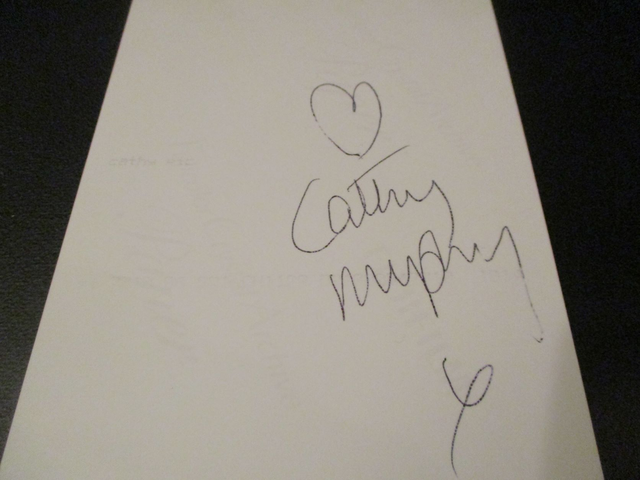 Cathy
Murphy
x